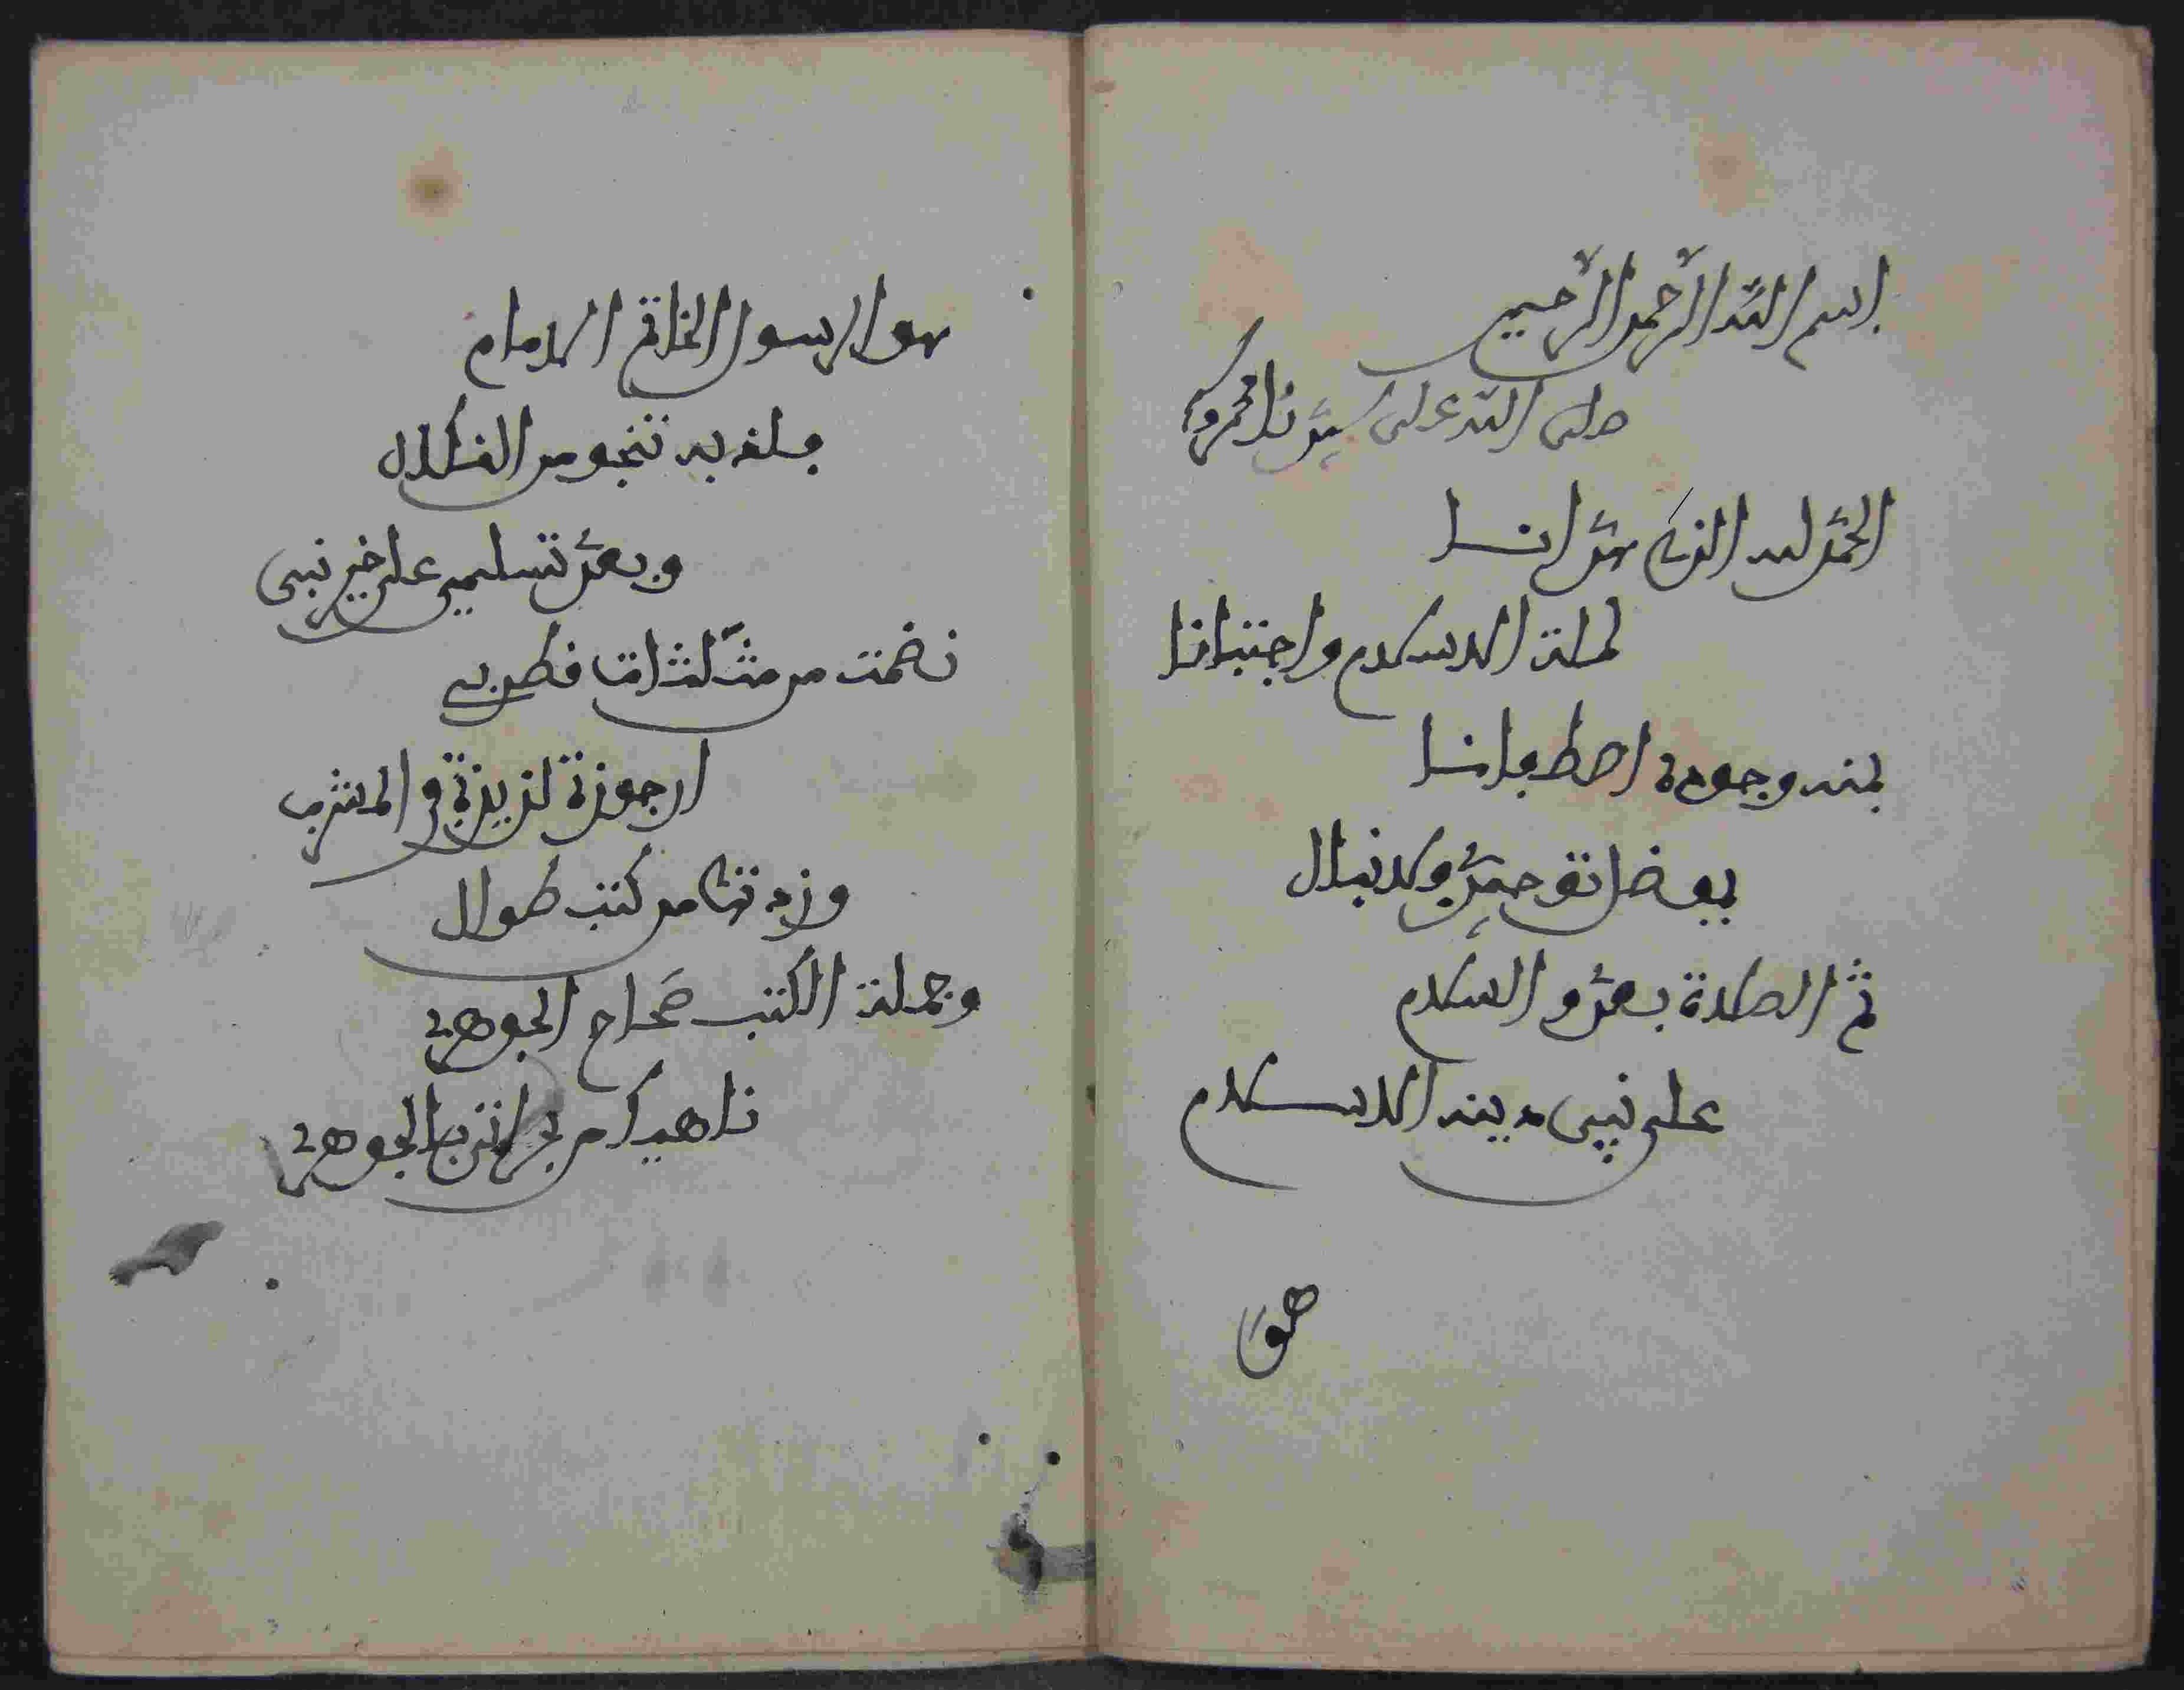 بسم الله الرحمن الرحيم
صلى الله على سيدنا محمد وآله
الحمد لله الذي هدانا
لملة الاسلام واجتبانا
بمنه وجوده اصطفانا
بفضل توحيد ولا نبال
ثم الصلاة بعد والسلام
على نبي دينه الاسلام
هو
هو الرسول الخاتم الامام
فلذ به تنجو من الضلال
وبعد تسليمي على خير نبي
نضمت من مثلثات قطرب
ارجوزة لذيذة في المشرب
وزدتها من كتب طوال
وجملة الكتب صحاح الجوهر
ناهيك من بحر اتى بالجوهر